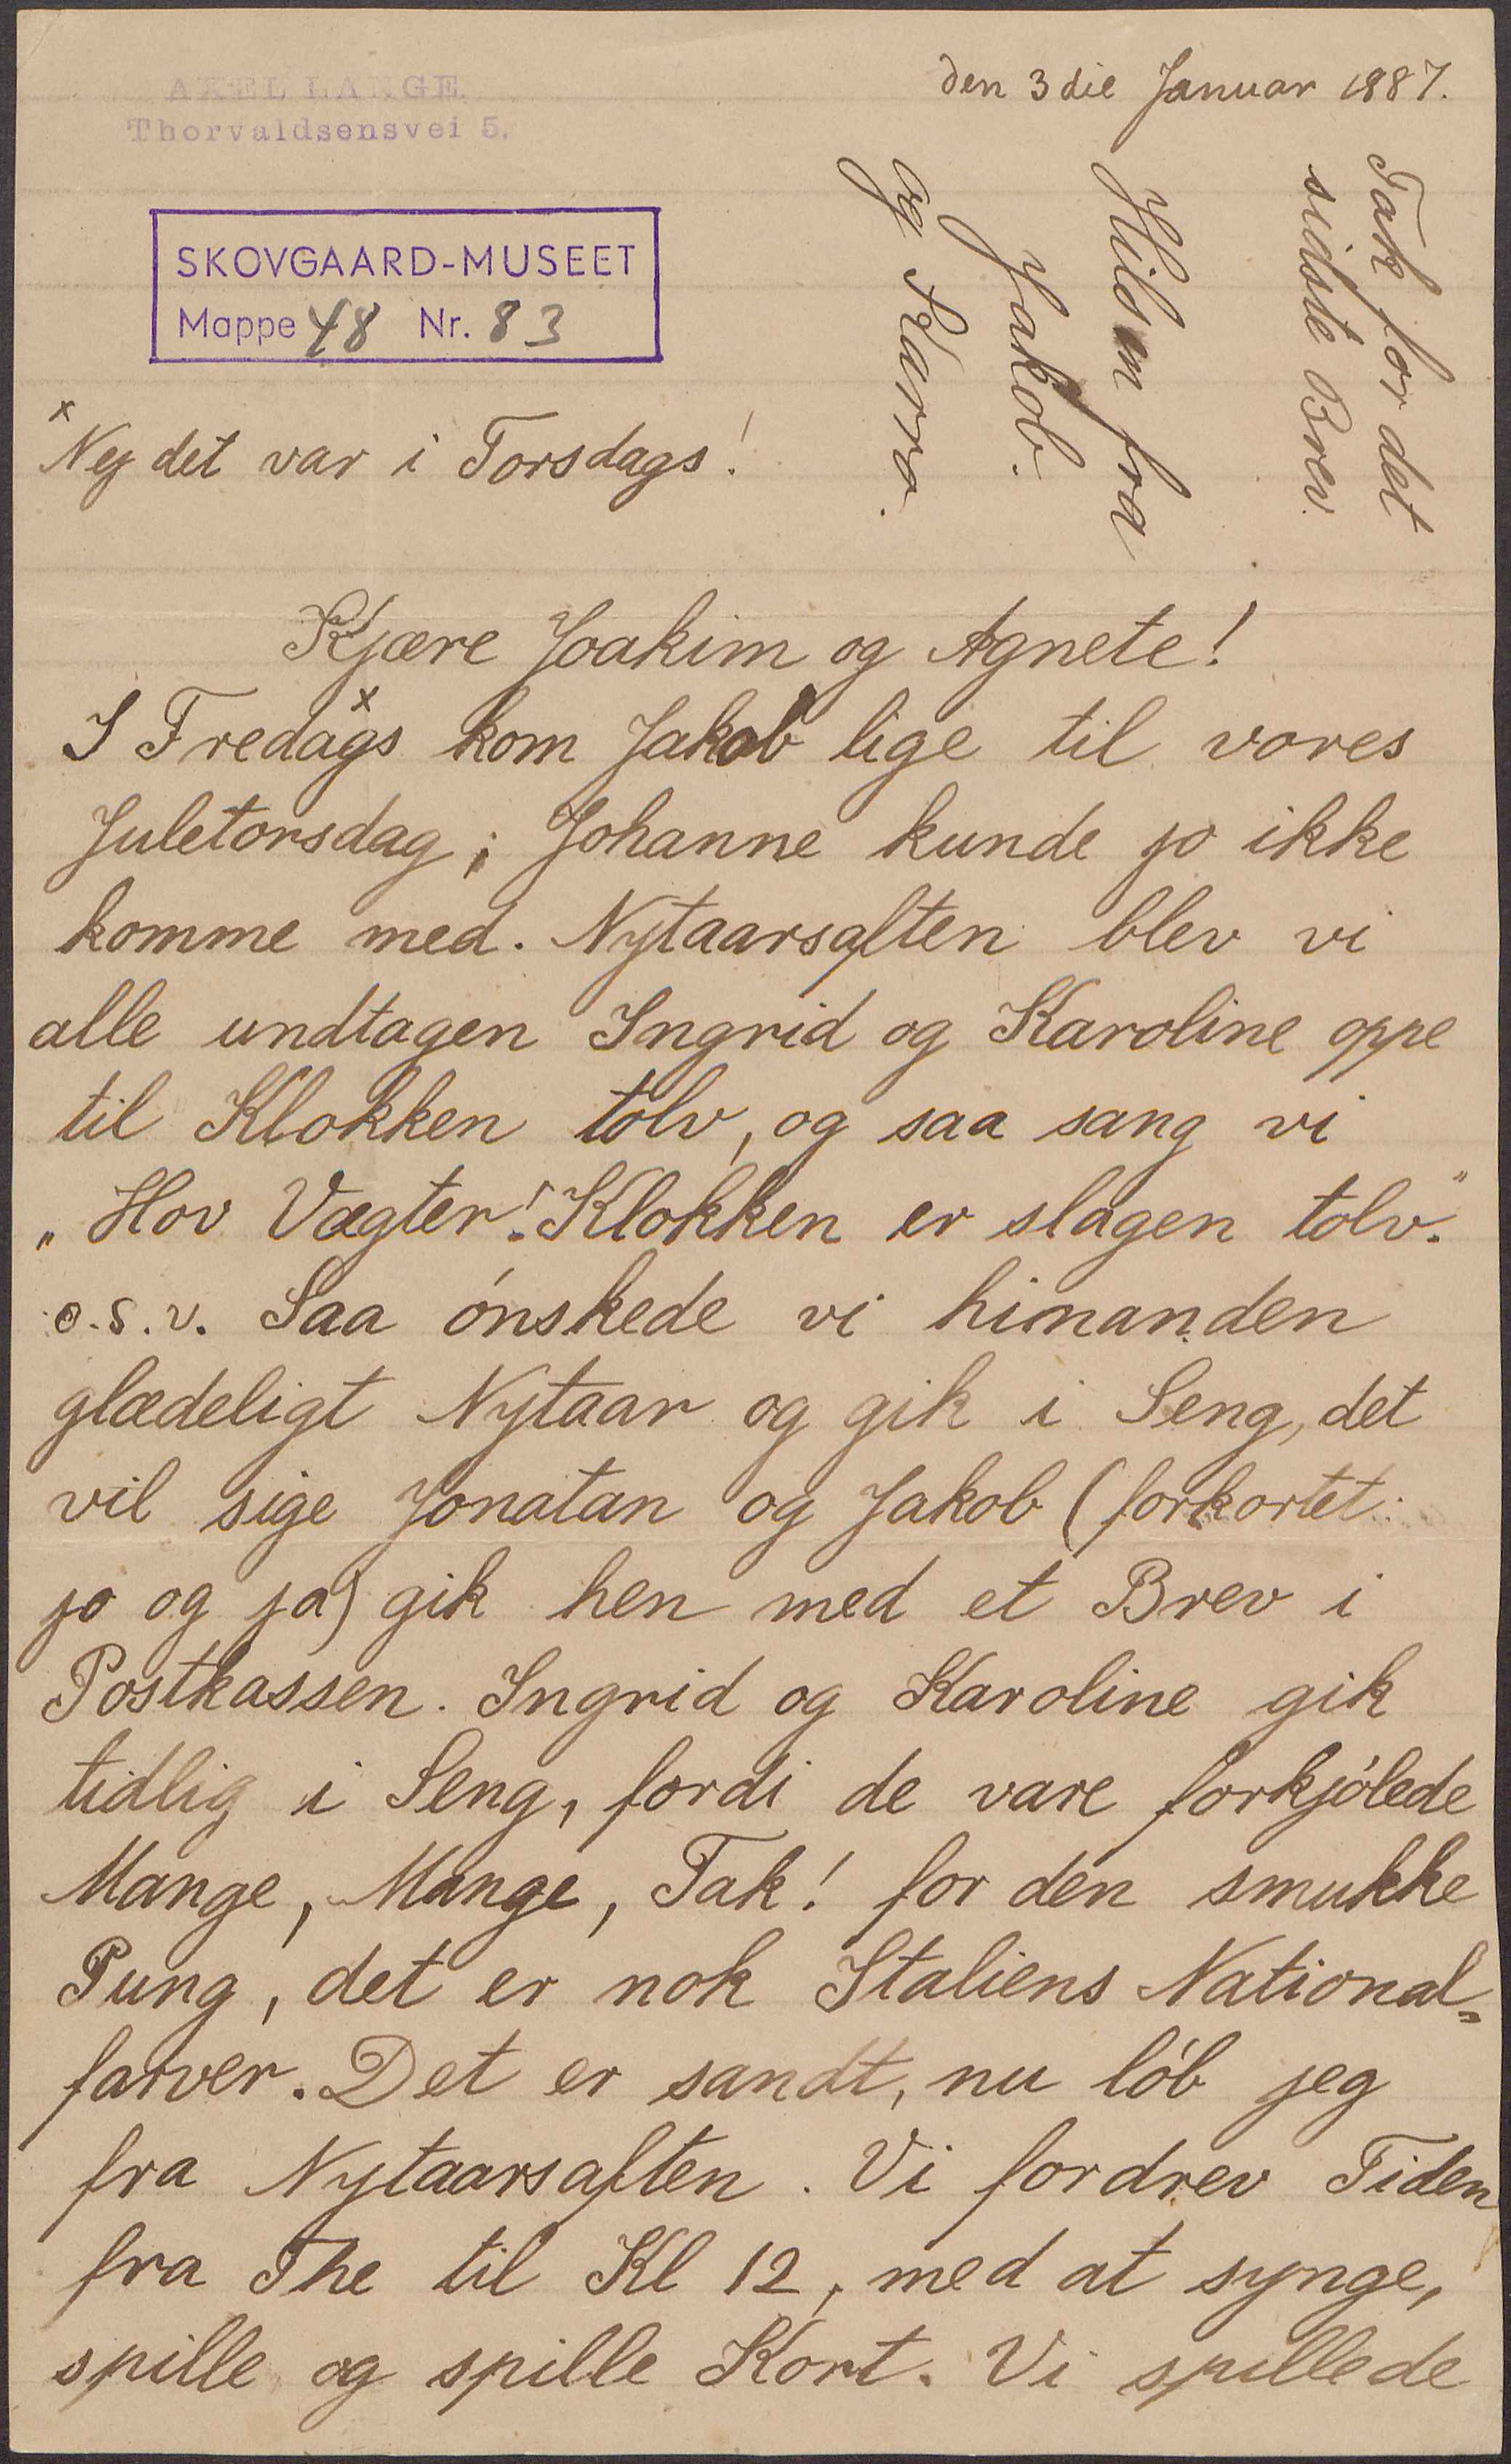 AXEL LANGE
Thorvaldsensvei 5.
den 3die Januar 1887.
SKOVGAARD-MUSEET
Mappe 48 Nr. 83
Tak for det
sidste Brev.
Hilsen fra
Jakob.
og Karro.
x Nej det var i Torsdags!
Kjære Joakim og Agnete!
I Fredags x kom Jakob lige til vores
Juletorsdag; Johanne kunde jo ikke
komme med. Nytaarsaften blev vi
alle undtagen Ingrid og Karoline oppe
til Klokken tolv, og saa sang vi
„Hov Vægter! Klokken er slagen tolv."
o.s.v. Saa ónskede vi himanden
glædeligt Nytaar og gik i Seng, det
vil sige Jonatan og Jakob (forkortet:
jo og ja) gik hen med et Brev i
Postkassen. Ingrid og Karoline gik
tidlig i Seng, fordi de vare forkjólede
Mange, Mange, Tak! for den smukke
Pung, det er nok Italiens National=
farver. Det er sandt, nu lób jeg
fra Nytaarsaften. Vi fordrev Tiden
fra The til Kl 12, med at synge,
spille og spille Kort. Vi spillede